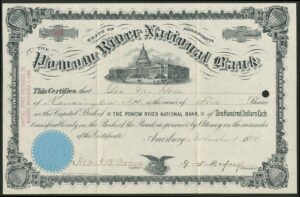 STATE OF MASSACHUSETTS
THE
Powow River National Bank
This Certifies that Geo. W.
of Kensington N.H. is the owner of Five Shares
in the Capital Stock of THE POWOW RIVER NATIONAL BANK, of One Hundred Dollars Each
transferable only on the Books of the Bank in person or by Attorney on the surrender
of this Certificate.
Amesbury November 1
Cashier